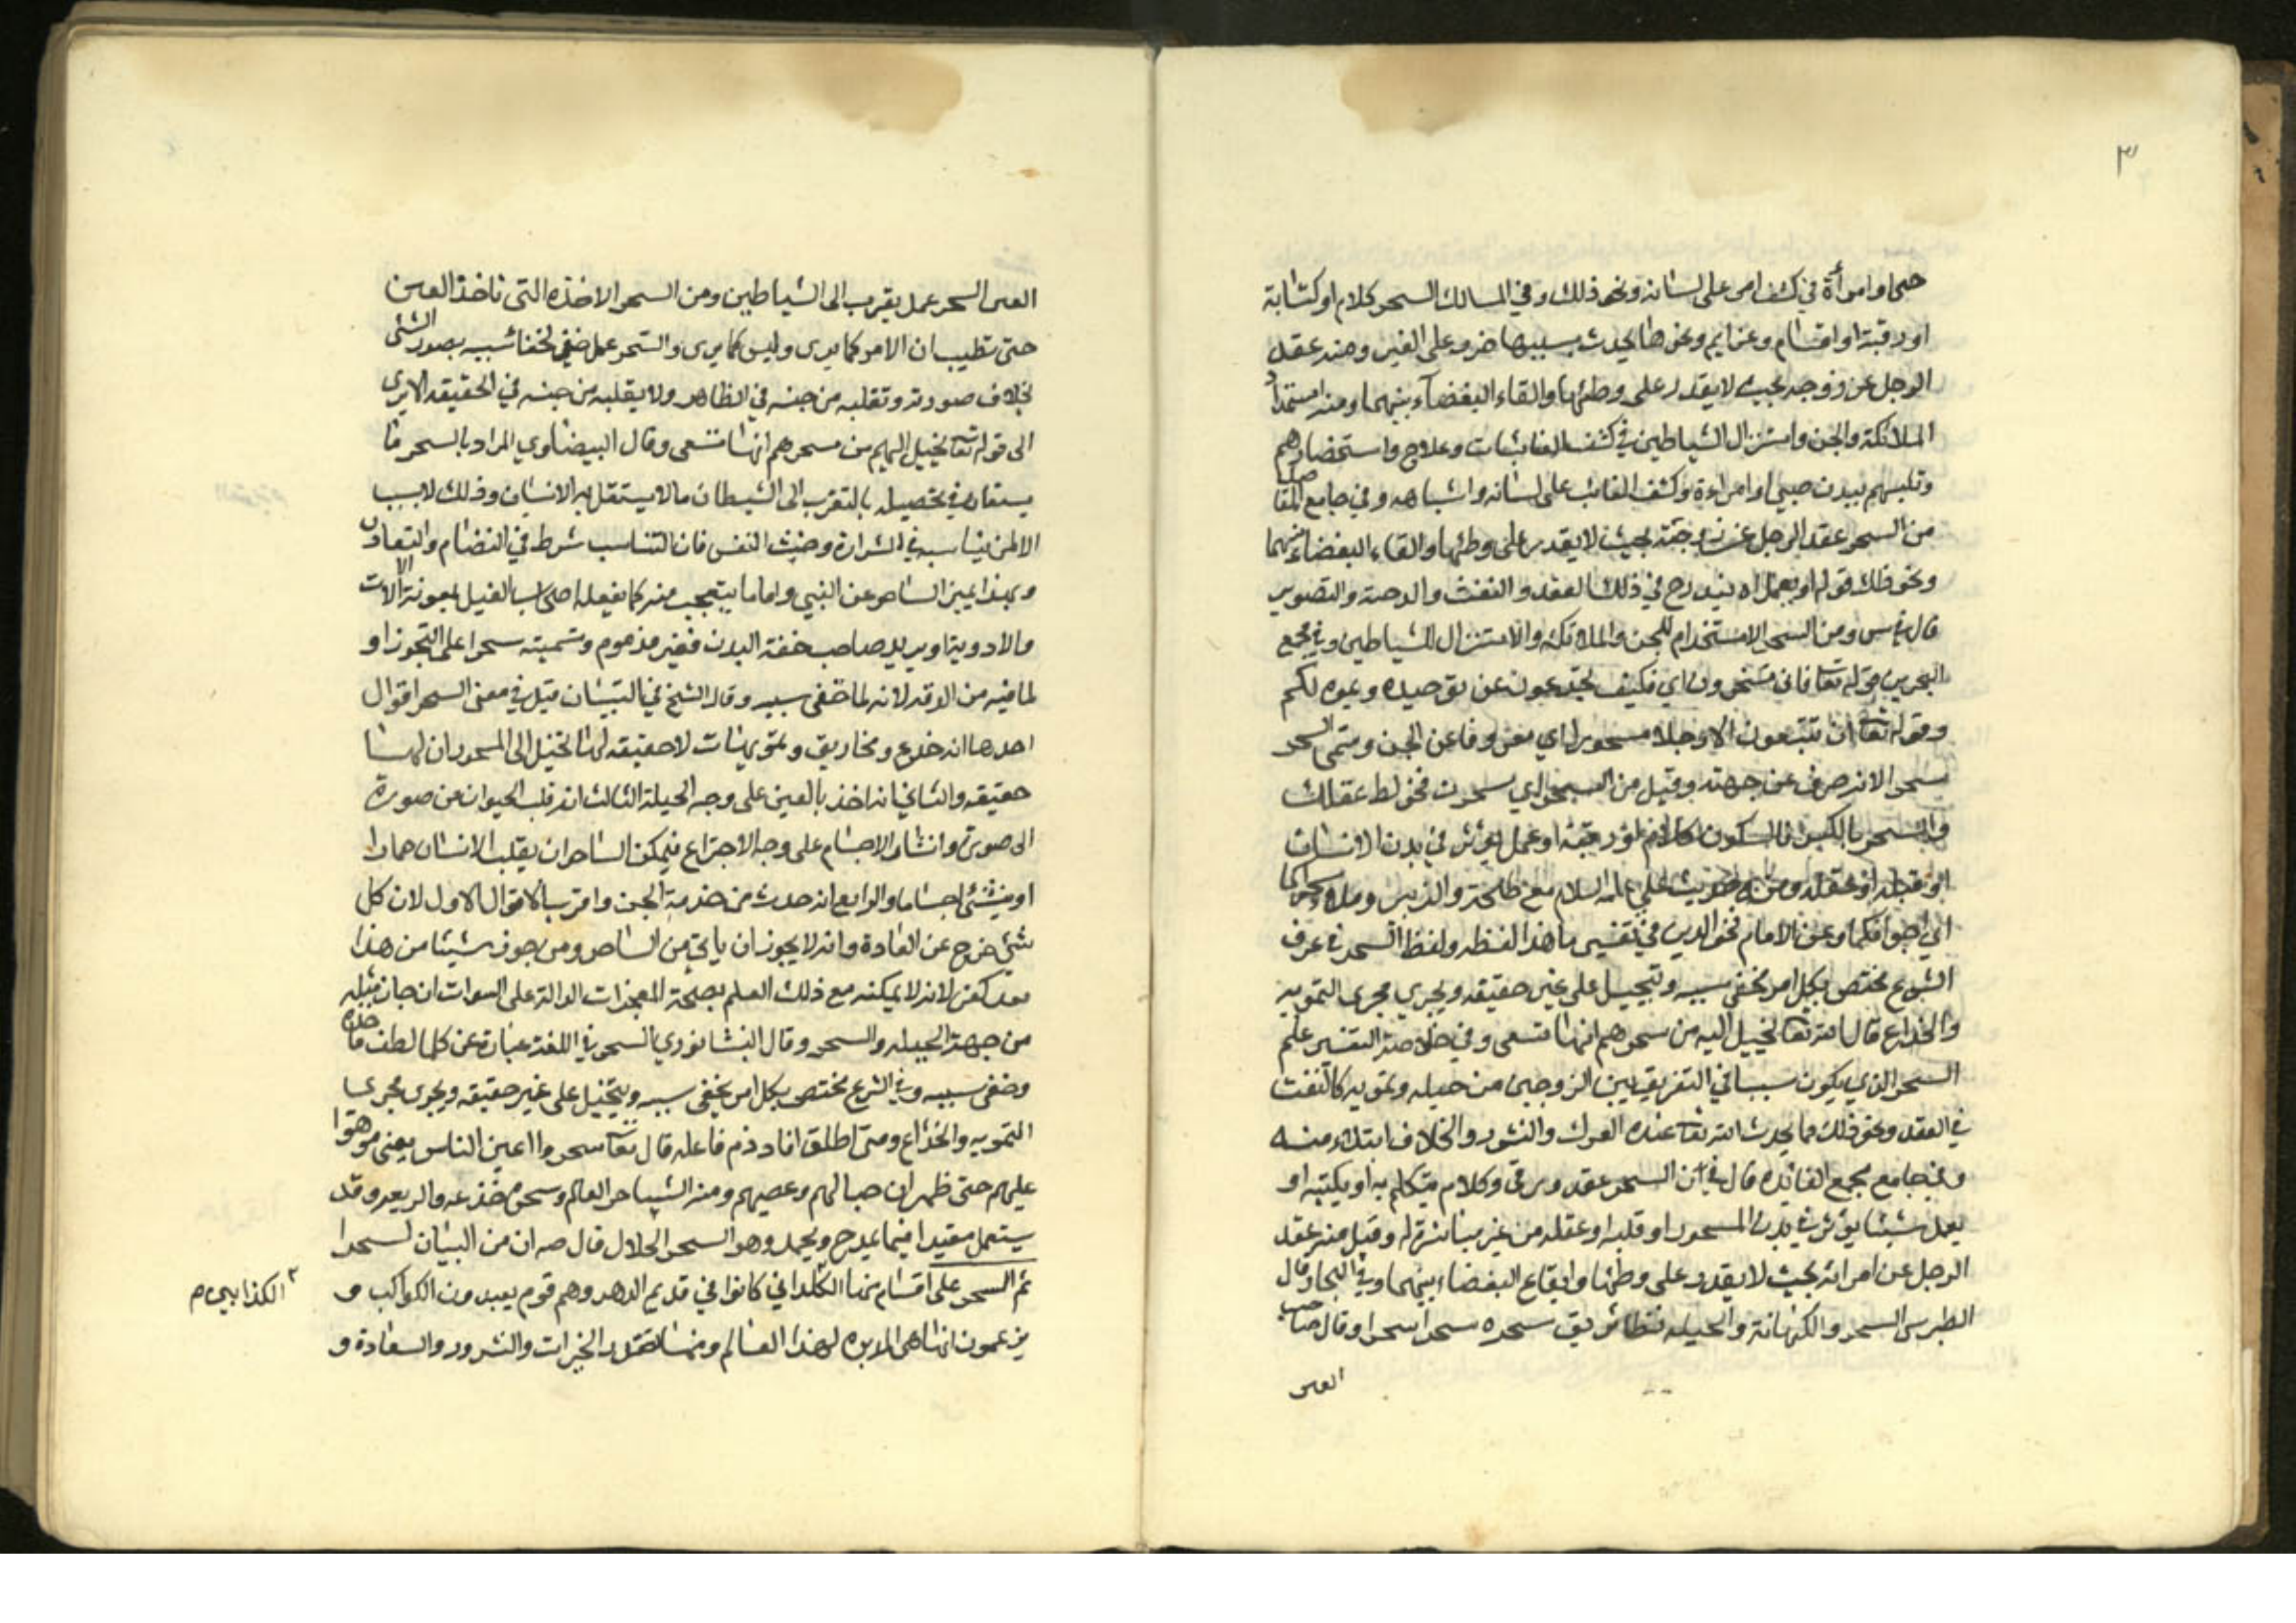 ٣
او امرأة في كشف امر على لسانه ونحو ذلك وفي المسالك السحر كلام او كتابة
او رقية او اقسام وعزايم ونحوها يحدث بسببها ضرر على الغير ومنه عقد
الرجل عن زوجه بحيث لا يقدر على وطئها والقاء البغضاء بينهما ومنه استخدام
الملائكة والجن واستنزال الشياطين في كشف الغائبات وعلاج واستحضارهم
وتلبسهم ببدن صبي او امراءة وكشف الغائب على لسانه واشباهه وفي جامع المقاصد
من السحر عقد الرجل عن زوجته بحيث لا يقدر على وطئها والقاء البغضاء بينهما
ونحو ذلك قوله او بعمل يندرج في ذلك العقد والنفث والتصوير
قال ومن السحر الاستخدام للجن والملائكة والاستنزال للشياطين وفي مجمع
البحرين قوله تعا فانى تسحرون اي فكيف تخدعون عن توحيده ويموه لكم
وقوله تعا ان تتبعون الا رجلا مسحورا اي مصروفا عن الحق وسمى السحر
سحرا لانه صرف عن جهته وقيل من السحر اي سحرت فخولط عقلك
والسحر بالكسر فالسكون كلام او رقية او عمل يؤثر في بدن الانسان
او قلبه او عقله ومن حديث علي عليه السلام مع طلحة والزبير
وعن الامام فخر الدين في تفسير ما هذا لفظه ولفظ السحر في عرف
الشرع مختص بكل امر مخفى سببه وتخيل على غير حقيقته ويجري مجرى التمويه
والخداع قال الله تعا يخيل اليه من سحرهم انها تسعى وفي خلاصة التفسير علم
السحر الذي يكون سببا في التفريق بين الزوجين من حيلة وتمويه كالنفث
في العقد ونحو ذلك مما يحدث الله تعا عنده الفرك والنشوز والخلاف ابتلاء منه
وفي جامع مجمع الفائده قال في ان السحر عقد ورقى وكلام يتكلم به او يكتبه او
يعمل شيئا يؤثر في بدن المسحور او قلبه او عقله من غير مباشرة له وقيل منه عقد
الرجل عن امراته بحيث لا يقدر على وطئها وايقاع البغضاء بينهما وفي البحار وقال
الطبرسي السحر والكهانة والحيله نظائر يق سحره سحرا وقال صاحب
العين
العين السحر عمل يقرب الى الشياطين ومن السحر الاخذه التي تاخذ العين
حتى تظن ان الامر كما يرى وليس كما يرى والسحر عمل خفي لخفاء سببه يصور الشئ
بخلاف صورته وتقلبه من جنسه في الظاهر ولا يقلبه من جنسه في الحقيقه الا يرى
الى قوله تعا يخيل اليهم من سحرهم انها تسعى وقال البيضاوي المراد بالسحر ما
يستعان في تحصيله بالتقرب الى الشيطان مالا يستقل به الانسان وذلك لا يسبب
الا لمن يناسبه في الشرارة وخبث النفس فان التناسب شرط في التضام والتعاون
وبهذا يميز الساحر عن النبي واما ما يتعجب منه كما يفعله اصحاب الحيل بمعونة الالات
والادوية او يريه صاحب خفة اليد فغير مذموم وتسميته سحرا على التجوز او
لما فيه من الدقه لانه لما خفى سببه وقال الشيخ في التبيان قيل في معنى السحر اقوال
احدها انه خدع ومخاريق وتمويهات لا حقيقه لها تخيل الى المسحور ان لها
حقيقه والثاني انه اخذ بالعين على وجه الحيلة الثالث انه قلب الحيوان من صورة
الى صورة وانشاء الاجسام على وجه الاختراع فيمكن الساحر ان يقلب الانسان حمارا
او ينشئ اجساما والرابع انه حدث من خدمة الجن واقرب الاقوال الاول لان كل
شئ خرج عن العادة وانه لا يجوز ان ياتي من الساحر ومن جوز شيئا من هذا
فقد كفر لانه لا يمكنه مع ذلك العلم بصحة المعجزات الدالة على النبوات ان جاز مثله
من جهة الحيله والسحر وقال النيشابوري السحر في اللغة عبارة عن كل ما لطف ماخذه
وخفى سببه وفي الشرع مختص بكل امر يخفى سببه ويتخيل على غير حقيقته ويجرى مجرى
التمويه والخداع ومتى اطلق افاد ذم فاعله قال تعا سحروا اعين الناس يعنى موهوا
عليهم حتى ظهر ان حبالهم وعصيهم ومنه الساحر العالم وسحره خدعه وقد
يستعمل مقيدا فيما يمدح ويحمد وهو السحر الحلال قال صه ان من البيان لسحرا
ثم السحر على اقسام منها الكلداني كانوا في قديم الدهر وهم قوم يعبدون الكواكب و
يزعمون انها هي المدبره لهذا العالم ومنها تصدر الخيرات والشرور والسعادة و